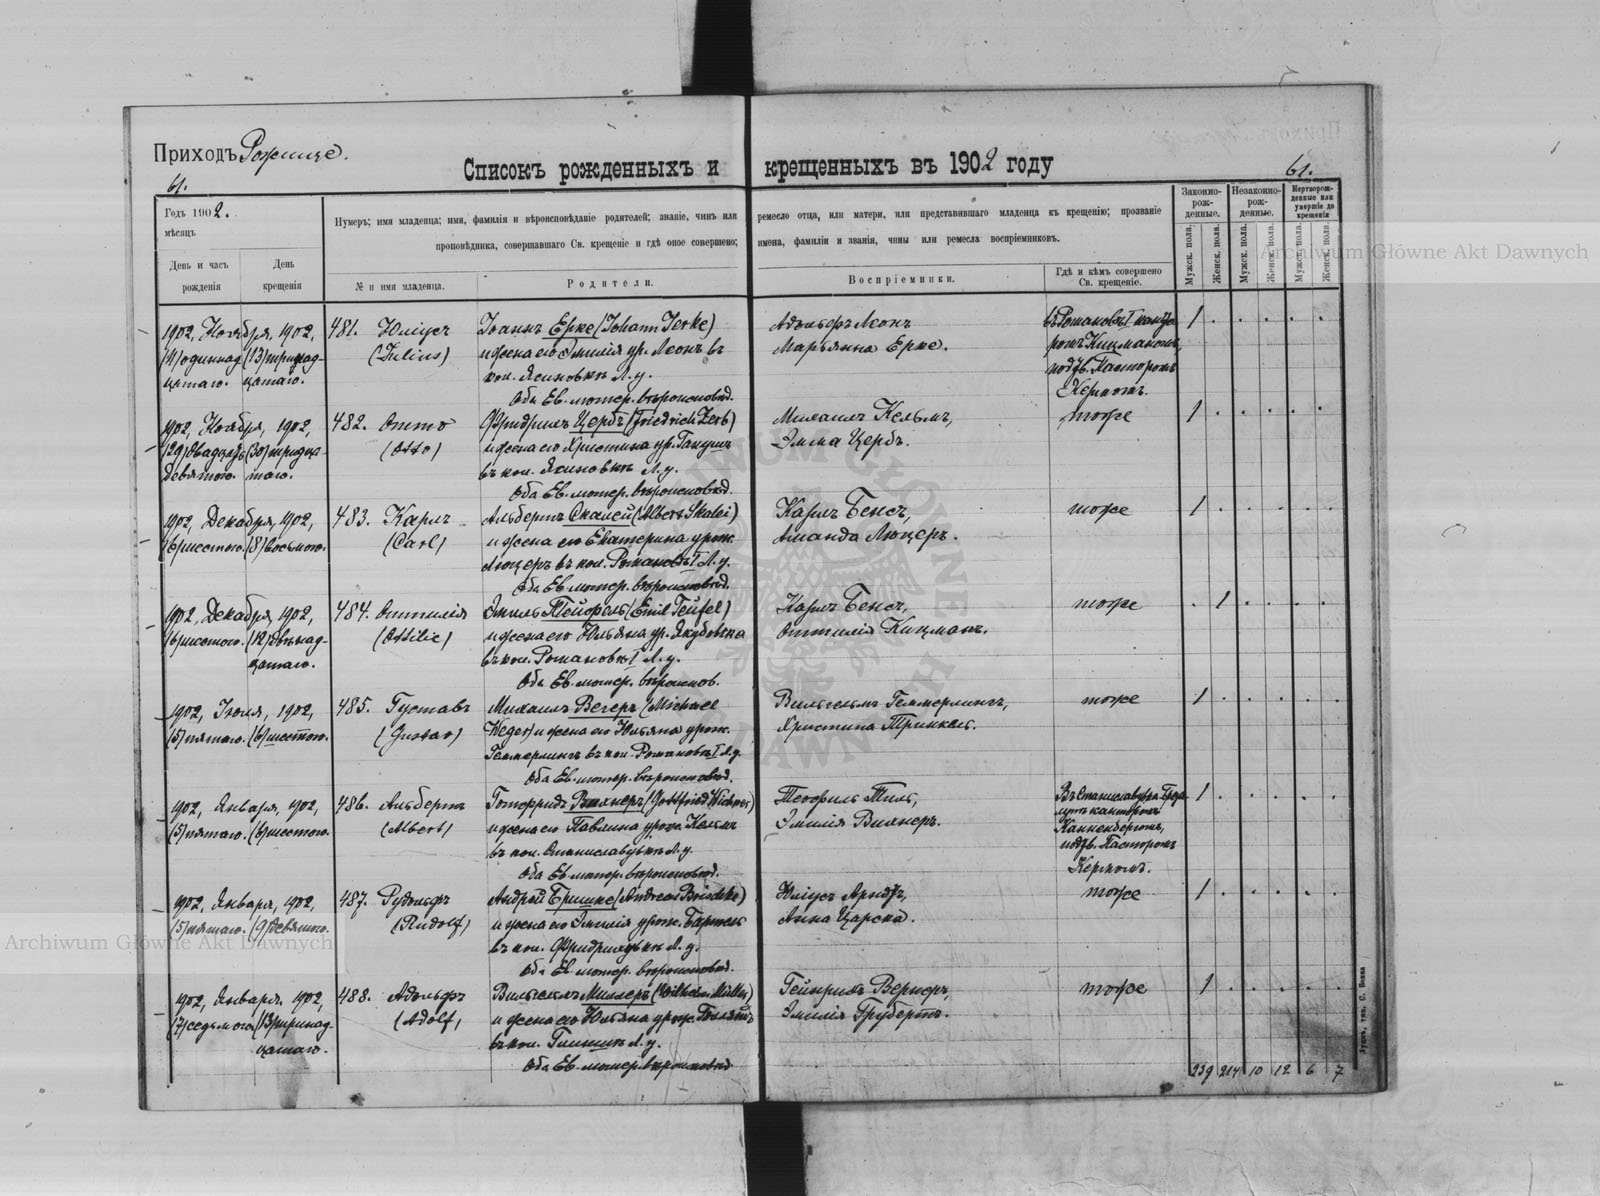 Приходъ Рожище.
Списокъ рожденныхъ и крещенныхъ въ 1902 году
61.
61.
Годъ 1902.
мѣсяцъ
День и часъ рожденія
День крещенія
Нумеръ; имя младенца; имя, фамилія и вѣроисповѣданіе родителей; званіе, чинъ или ремесло отца, или матери, или представившаго младенца къ крещенію; прозваніе
проповѣдника, совершавшаго Св. крещеніе и гдѣ оное совершено; имена, фамиліи и званія, чины или ремесла воспріемниковъ.
№ и имя младенца.
Родители.
Воспріемники.
Гдѣ и кѣмъ совершено Св. крещеніе.
Законно-рож-денные.
Незаконно-рож-денные.
Мертворож-денные или умершіе до крещенія
Мужск. пола.
Женск. пола.
Мужск. пола.
Женск. пола.
Мужск. пола.
Женск. пола.
1902, Ноября, 1902,
(11) одиннад- (13) тринад-
цатаго. цатаго.
481. Юліусъ
(Julius)
Іоаннъ Ерке (Johann Jerke)
и жена его Эмилія ур. Леонъ въ
кол. Ясиновкѣ Л. у.
Оба Ев. лютер. вѣроисповѣд.
Адольфъ Леонъ
Марьянна Ерке.
въ Романовкѣ I канто-
ромъ Кицманомъ,
подтв. Пасторомъ
Керномъ.
1
1902, Ноября, 1902,
(29) двадцать (30) тридца-
девятого. таго.
482. Отто
(Otto)
Фридрихъ Цербъ (Friedrich Zerb)
и жена его Христина ур.
въ кол. Ясиновкѣ Л. у.
Оба Ев. лютер. вѣроисповѣд.
Михаилъ Кельмъ,
Эмма Цербъ.
тоже
1
1902, Декабря, 1902,
(6) шестого. (8) восьмого.
483. Карлъ
(Carl)
Альбертъ Скалей (Albert Skalei)
и жена его Екатерина урож.
Люцеръ въ кол. Романовкѣ I Л. у.
Оба Ев. лютер. вѣроисповѣд.
Карлъ Бенсъ,
Аманда Люцеръ.
тоже
1
1902, Декабря, 1902,
(6) шестого. (12) двѣнад-
цатаго.
484. Оттилія
(Ottilie)
Эмиль Тейфель (Emil Teufel)
и жена его Юльяна ур. Якубовска
въ кол. Романовкѣ I Л. у.
Оба Ев. лютер. вѣроисповѣд.
Карлъ Бенсъ,
Оттилія Кицманъ.
тоже
1
1902, Іюля, 1902,
(5) пятаго. (6) шестого.
485. Густавъ
(Gustav)
Михаилъ Вегеръ (Michael
Weger) и жена его Юльяна урож.
Геммерлингъ въ кол. Романовкѣ I Л. у.
Оба Ев. лютер. вѣроисповѣд.
Вильгельмъ Геммерлингъ,
Христина Тринкель.
тоже
1
1902, Января, 1902,
(5) пятаго. (6) шестого.
486. Альбертъ
(Albert)
Готфридъ Вихнеръ (Gottfried Wichner)
и жена его Павлина урож. Кельмъ
въ кол. Станиславувкѣ Л. у.
Оба Ев. лютер. вѣроисповѣд.
Теофиль Тиль,
Эмилія Вихнеръ.
канторомъ
Канненбергомъ,
подтв. Пасторомъ
Керномъ.
1
1902, Января, 1902,
(5) пятаго. (9) девятого.
487. Рудольфъ
(Rudolf)
Андрей Бришке (Andreas Brischke)
и жена его Эмилія урож. Бартель
въ кол. Фридриховкѣ Л. у.
Оба Ев. лютер. вѣроисповѣд.
Юліусъ Арндтъ,
Анна Царска.
тоже
1
1902, Января, 1902,
(7) седьмого (13) тринад-
цатаго.
488. Адольфъ
(Adolf)
Вильгельмъ Миллеръ (Wilhelm Müller)
и жена его Юльяна урож.
въ кол. Л. у.
Оба Ев. лютер. вѣроисповѣд.
Гейнрихъ Вернеръ,
Эмилія Грубертъ.
тоже
1
239 214 10 12 6 7
Луцкъ, тип. С. Бонка
Archiwum Główne Akt Dawnych
Archiwum Główne Akt Dawnych
ARCHIWUM GŁÓWNE AKT DAWNYCH